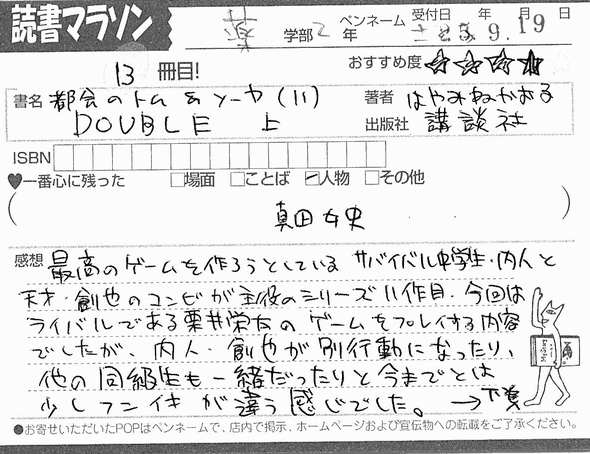 読書マラソン
薬 学部 2 年 ペンネーム 受付日 年 月 日
25.9.19
13 冊目! おすすめ度 ☆☆☆★
書名 都会のトム&ソーヤ(11) 著者 はやみねかおる
DOUBLE 上 出版社 講談社
ISBN
♥一番心に残った □場面 □ことば ☑人物 □その他
( 真田女史 )
感想 最高のゲームを作ろうとしている サバイバル中学生・内人と
天才・創也のコンビが主役のシリーズ11作目。今回は
ライバルである栗井栄太のゲームをプレイする内容
でしたが、内人・創也が別行動になったり、
他の同級生も一緒だったりと今までとは
少しフンイキが違う感じでした。→下巻
●お寄せいただいたPOPはペンネームで、店内で掲示、ホームページおよび宣伝物への転載をご了承ください。